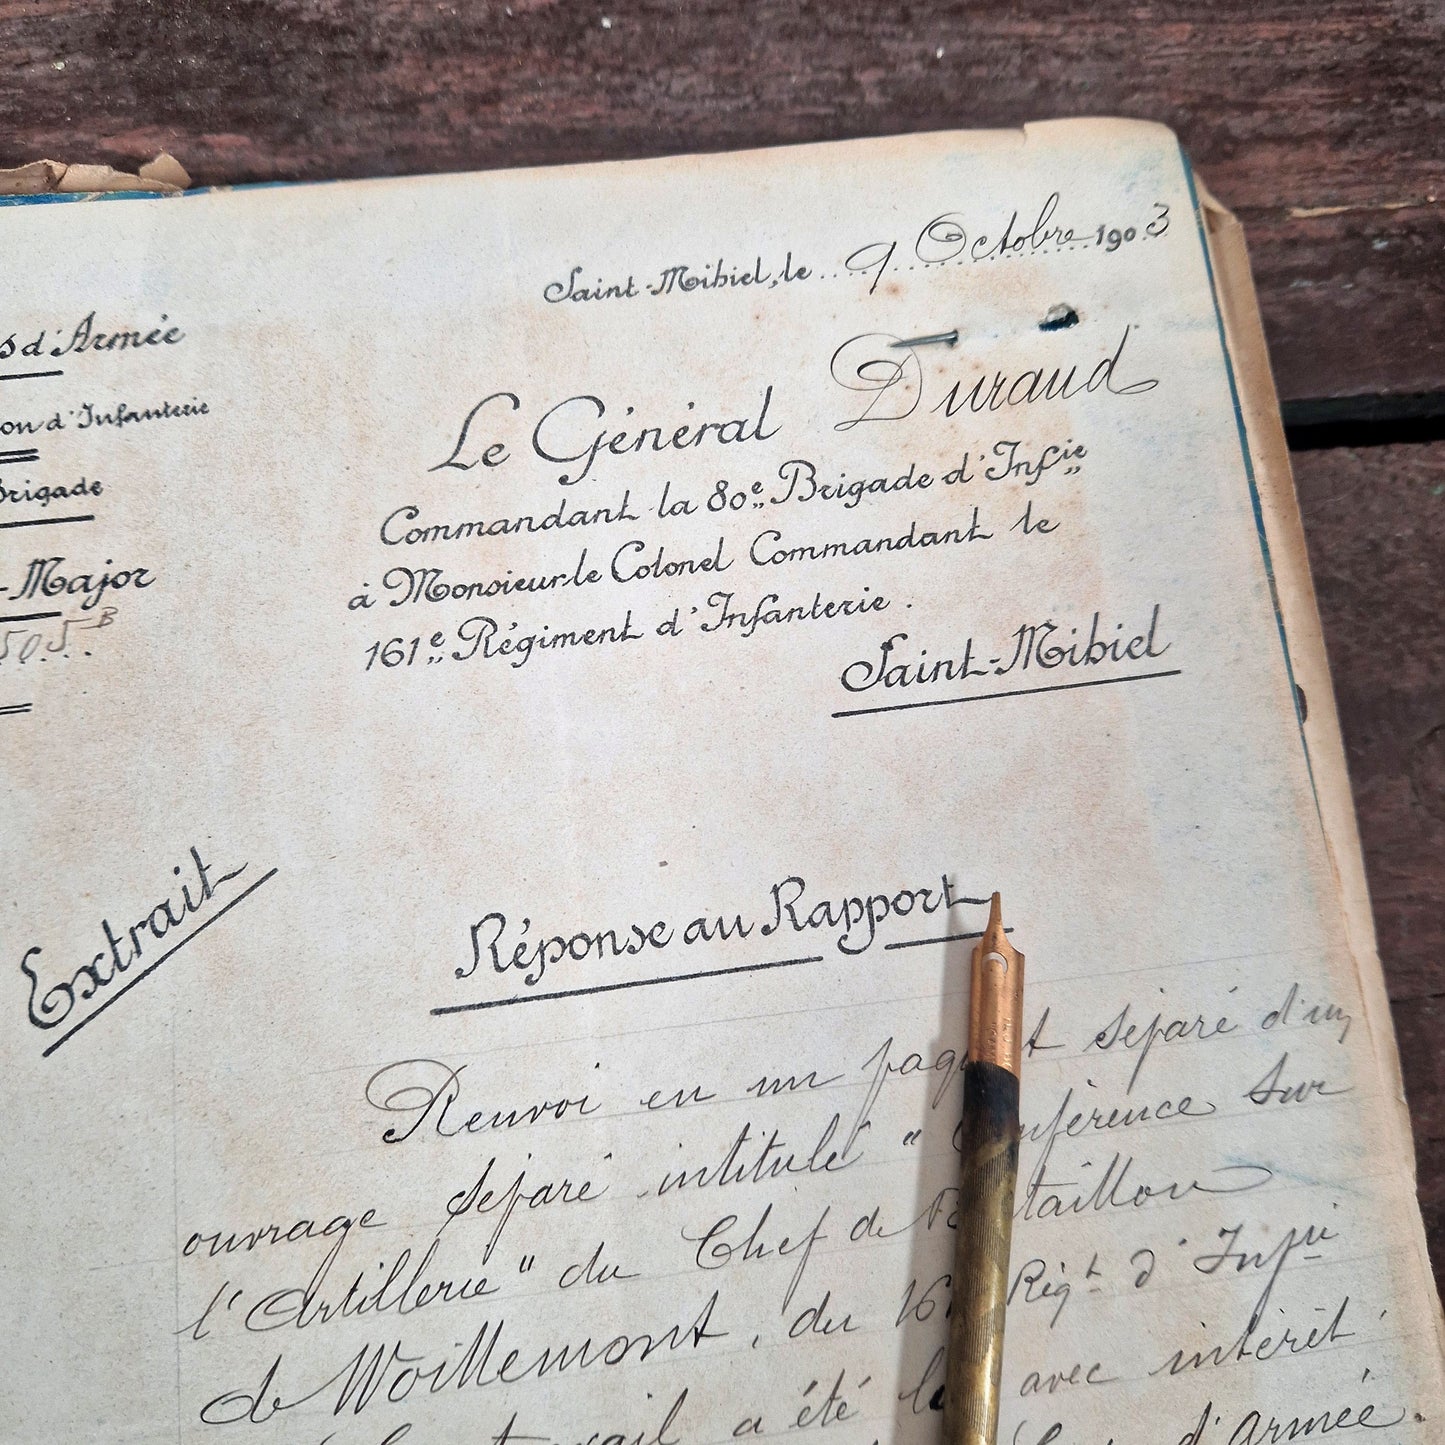 Saint-Mihiel, le 9 Octobre 1903
s d'Armée
on d'Infanterie
Brigade
-Major
505 B
Le Général Durand
Commandant la 80e Brigade d'Infie
à Monsieur le Colonel Commandant le
161e Régiment d'Infanterie.
Saint-Mihiel
Extrait
Réponse au Rapport
Renvoi en un paquet séparé d'un
ouvrage séparé intitulé "Conférence sur
l'Artillerie" du Chef de Bataillon
de Woillemont, du 161 Régt d'Infie
travail a été lu avec intérêt
d'Armée.